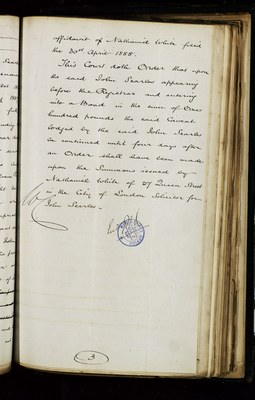 affidavit of Nathaniel White filed
the 30th April 1888.
This Court doth Order that upon
the said John Searles appearing
before the Registrar and entering
into a Bond in the sum of One
hundred pounds the said Caveat
lodged by the said John Searles
be continued until four days after
an Order shall have been made
upon the Summons issued by
Nathaniel White of 27 Queen Street
in the City of London Solicitor for
John Searles.
3